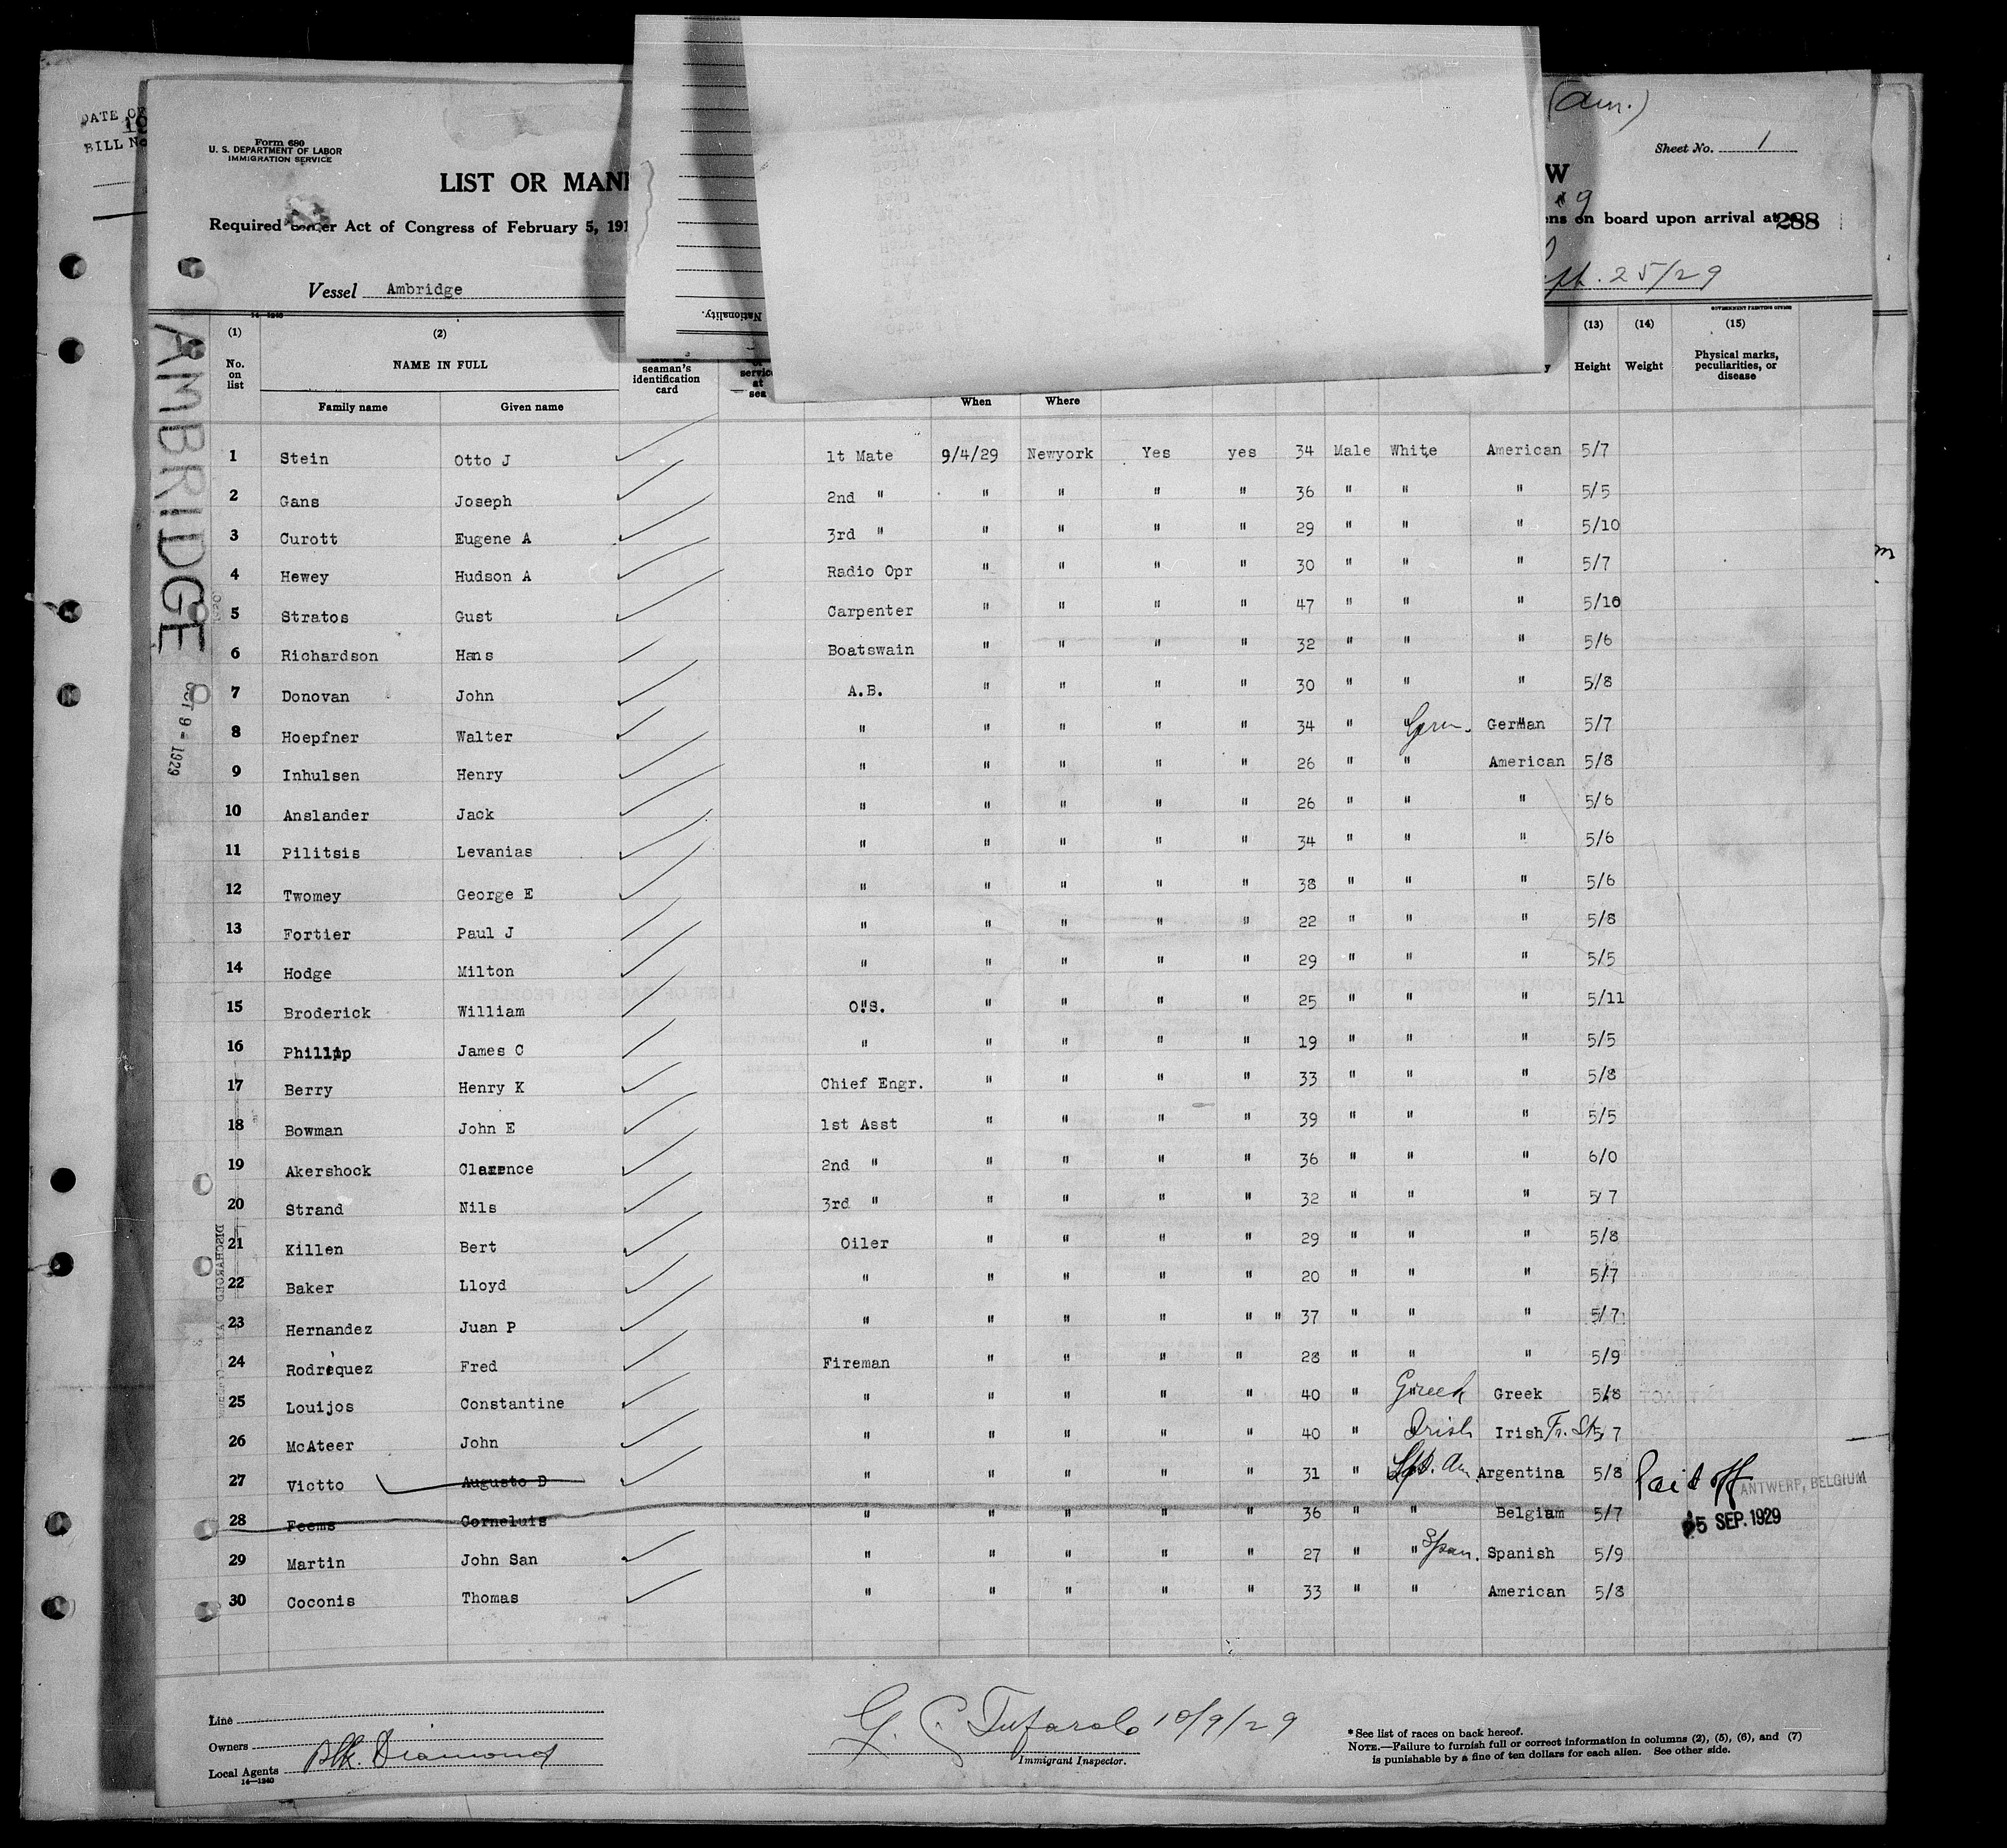 (Am.)
DATE OF
BILL No
Form 680
U. S. DEPARTMENT OF LABOR
IMMIGRATION SERVICE
Sheet No. 1
LIST OR MANI
W
9
Required under Act of Congress of February 5, 191
ens on board upon arrival at
288
Vessel Ambridge
pt. 25/29
Nationality.
14-1240
GOVERNMENT PRINTING OFFICE
(1) (2) (13) (14) (15)
No. on list NAME IN FULL seaman's identification card service at sea Height Weight Physical marks, peculiarities, or disease
Family name Given name When Where
AMBRIDGE
OCT 9 - 1929
1 Stein Otto J 1t Mate 9/4/29 Newyork Yes yes 34 Male White American 5/7
2 Gans Joseph 2nd " " " " " 36 " " " 5/5
3 Curott Eugene A 3rd " " " " " 29 " " " 5/10
4 Hewey Hudson A Radio Opr " " " " 30 " " " 5/7
5 Stratos Gust Carpenter " " " " 47 " " " 5/10
6 Richardson Hans Boatswain " " " " 32 " " " 5/6
7 Donovan John A.B. " " " " 30 " " " 5/8
8 Hoepfner Walter " " " " " 34 " " Germ. German 5/7
9 Inhulsen Henry " " " " " 26 " " American 5/8
10 Anslander Jack " " " " " 26 " " " 5/6
11 Pilitsis Levanias " " " " " 34 " " " 5/6
12 Twomey George E " " " " " 38 " " " 5/6
13 Fortier Paul J " " " " " 22 " " " 5/8
14 Hodge Milton " " " " " 29 " " " 5/5
15 Broderick William O.S. " " " " 25 " " " 5/11
16 Phillip James C " " " " " 19 " " " 5/5
17 Berry Henry K Chief Engr. " " " " 33 " " " 5/8
18 Bowman John E 1st Asst " " " " 39 " " " 5/5
19 Akershock Clarence 2nd " " " " " 36 " " " 6/0
20 Strand Nils 3rd " " " " " 32 " " " 5/7
21 Killen Bert Oiler " " " " 29 " " " 5/8
22 Baker Lloyd " " " " " 20 " " " 5/7
23 Hernandez Juan P " " " " " " 37 " " " 5/7
24 Rodrequez Fred Fireman " " " " 28 " " " 5/9
25 Louijos Constantine " " " " " 40 " " Greek Greek 5/8
26 McAteer John " " " " " 40 " Irish Irish Fr. St. 5/7
27 Viotto Augusto D " " " " " 31 " Sp. Am Argentina 5/8 Paid off
ANTWERP, BELGIUM
28 Feems Corneluis " " " " " 36 " " Belgium 5/7
5 SEP. 1929
29 Martin John San " " " " " 27 " " Span. Spanish 5/9
30 Coconis Thomas " " " " " 33 " " American 5/8
DISCHARGED
Line
Owners
Blk. Diamond
Local Agents
14-1240
10/9/29
Immigrant Inspector.
* See list of races on back hereof.
NOTE.—Failure to furnish full or correct information in columns (2), (5), (6), and (7)
is punishable by a fine of ten dollars for each alien. See other side.